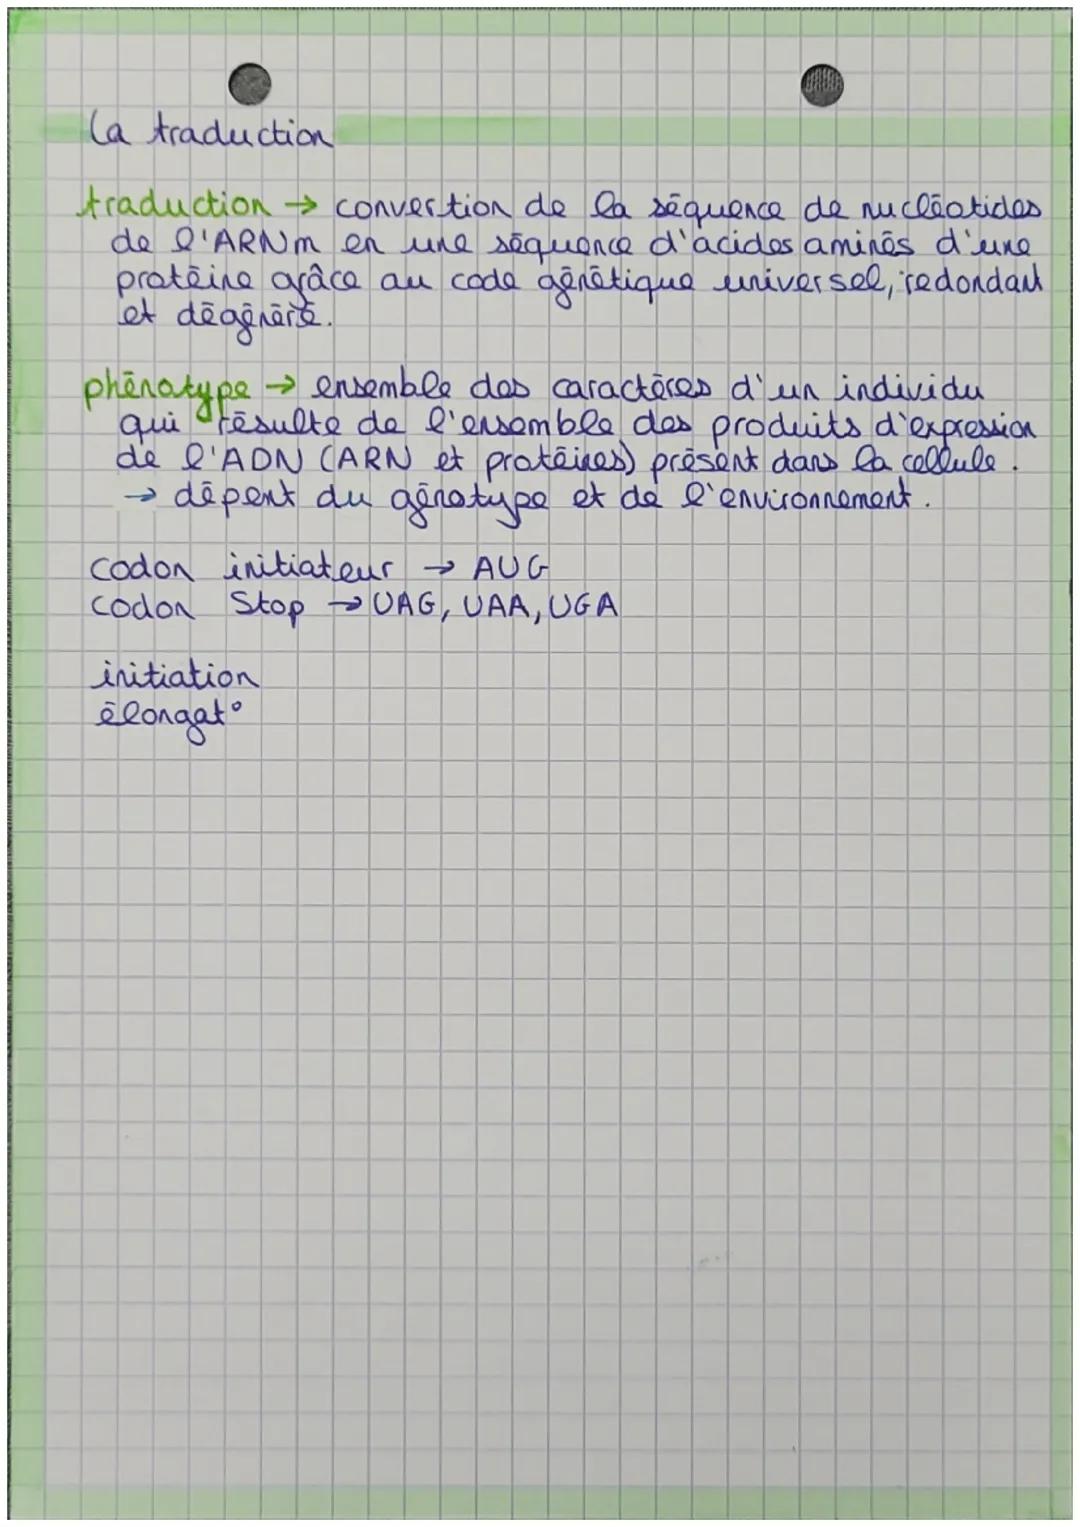 la traduction
traduction → convertion de la séquence de nucléotides
de l'ARNm en une séquence d'acides aminés d'une
protéine grâce au code génétique universel, redondant
et dégénéré.
phénotype → ensemble des caractères d'un individu
qui résulte de l'ensemble des produits d'expression
de l'ADN (ARN et protéines) présent dans la cellule.
→ dépent du génotype et de l'environnement.
codon initiateur → AUG
codon Stop → UAG, UAA, UGA
initiation
élongat°